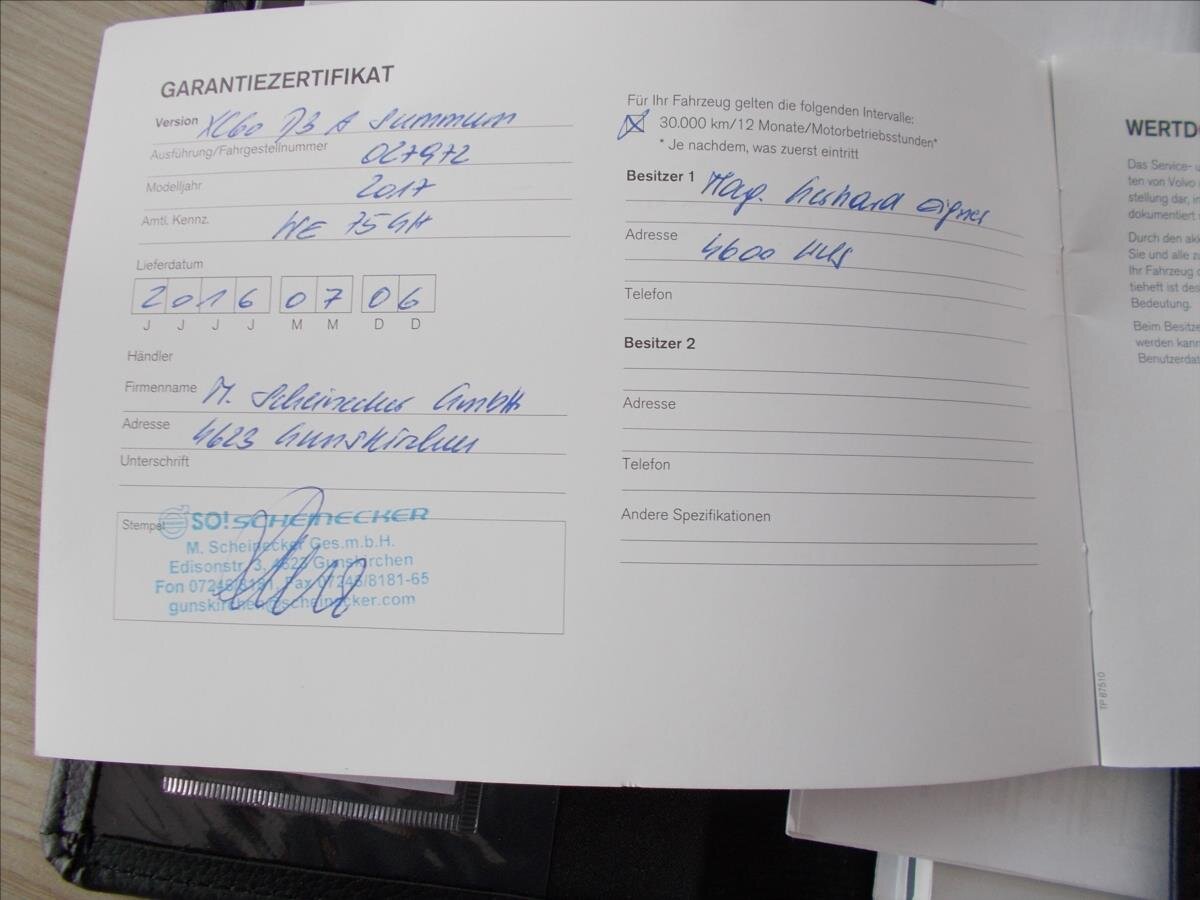 GARANTIEZERTIFIKAT
Version XC60 D3 A Summum
Ausführung/Fahrgestellnummer 027972
Modelljahr 2017
Amtl. Kennz. WE 75GH
Lieferdatum
2016 07 06
J J J J M M D D
Händler
Firmenname M. Scheinecker GmbH
Adresse 4623 Gunskirchen
Unterschrift
Stempel SO!SCHEINECKER
M. Scheinecker Ges.m.b.H.
Edisonstr. 3, 4623 Gunskirchen
Fon 07246/8181, Fax 07246/8181-65
gunskirchen@scheinecker.com
Für Ihr Fahrzeug gelten die folgenden Intervalle:
30.000 km/12 Monate/Motorbetriebsstunden*
* Je nachdem, was zuerst eintritt
Besitzer 1 Mag. Gerhard Aigner
Adresse 4600 Wels
Telefon
Besitzer 2
Adresse
Telefon
Andere Spezifikationen
TP 87510
WERTD
Das Service- u
ten von Volvo
stellung dar, in
dokumentiert
Durch den akk
Sie und alle zu
Ihr Fahrzeug
tieheft ist des
Bedeutung.
Beim Besitze
werden kann
Benutzerdat